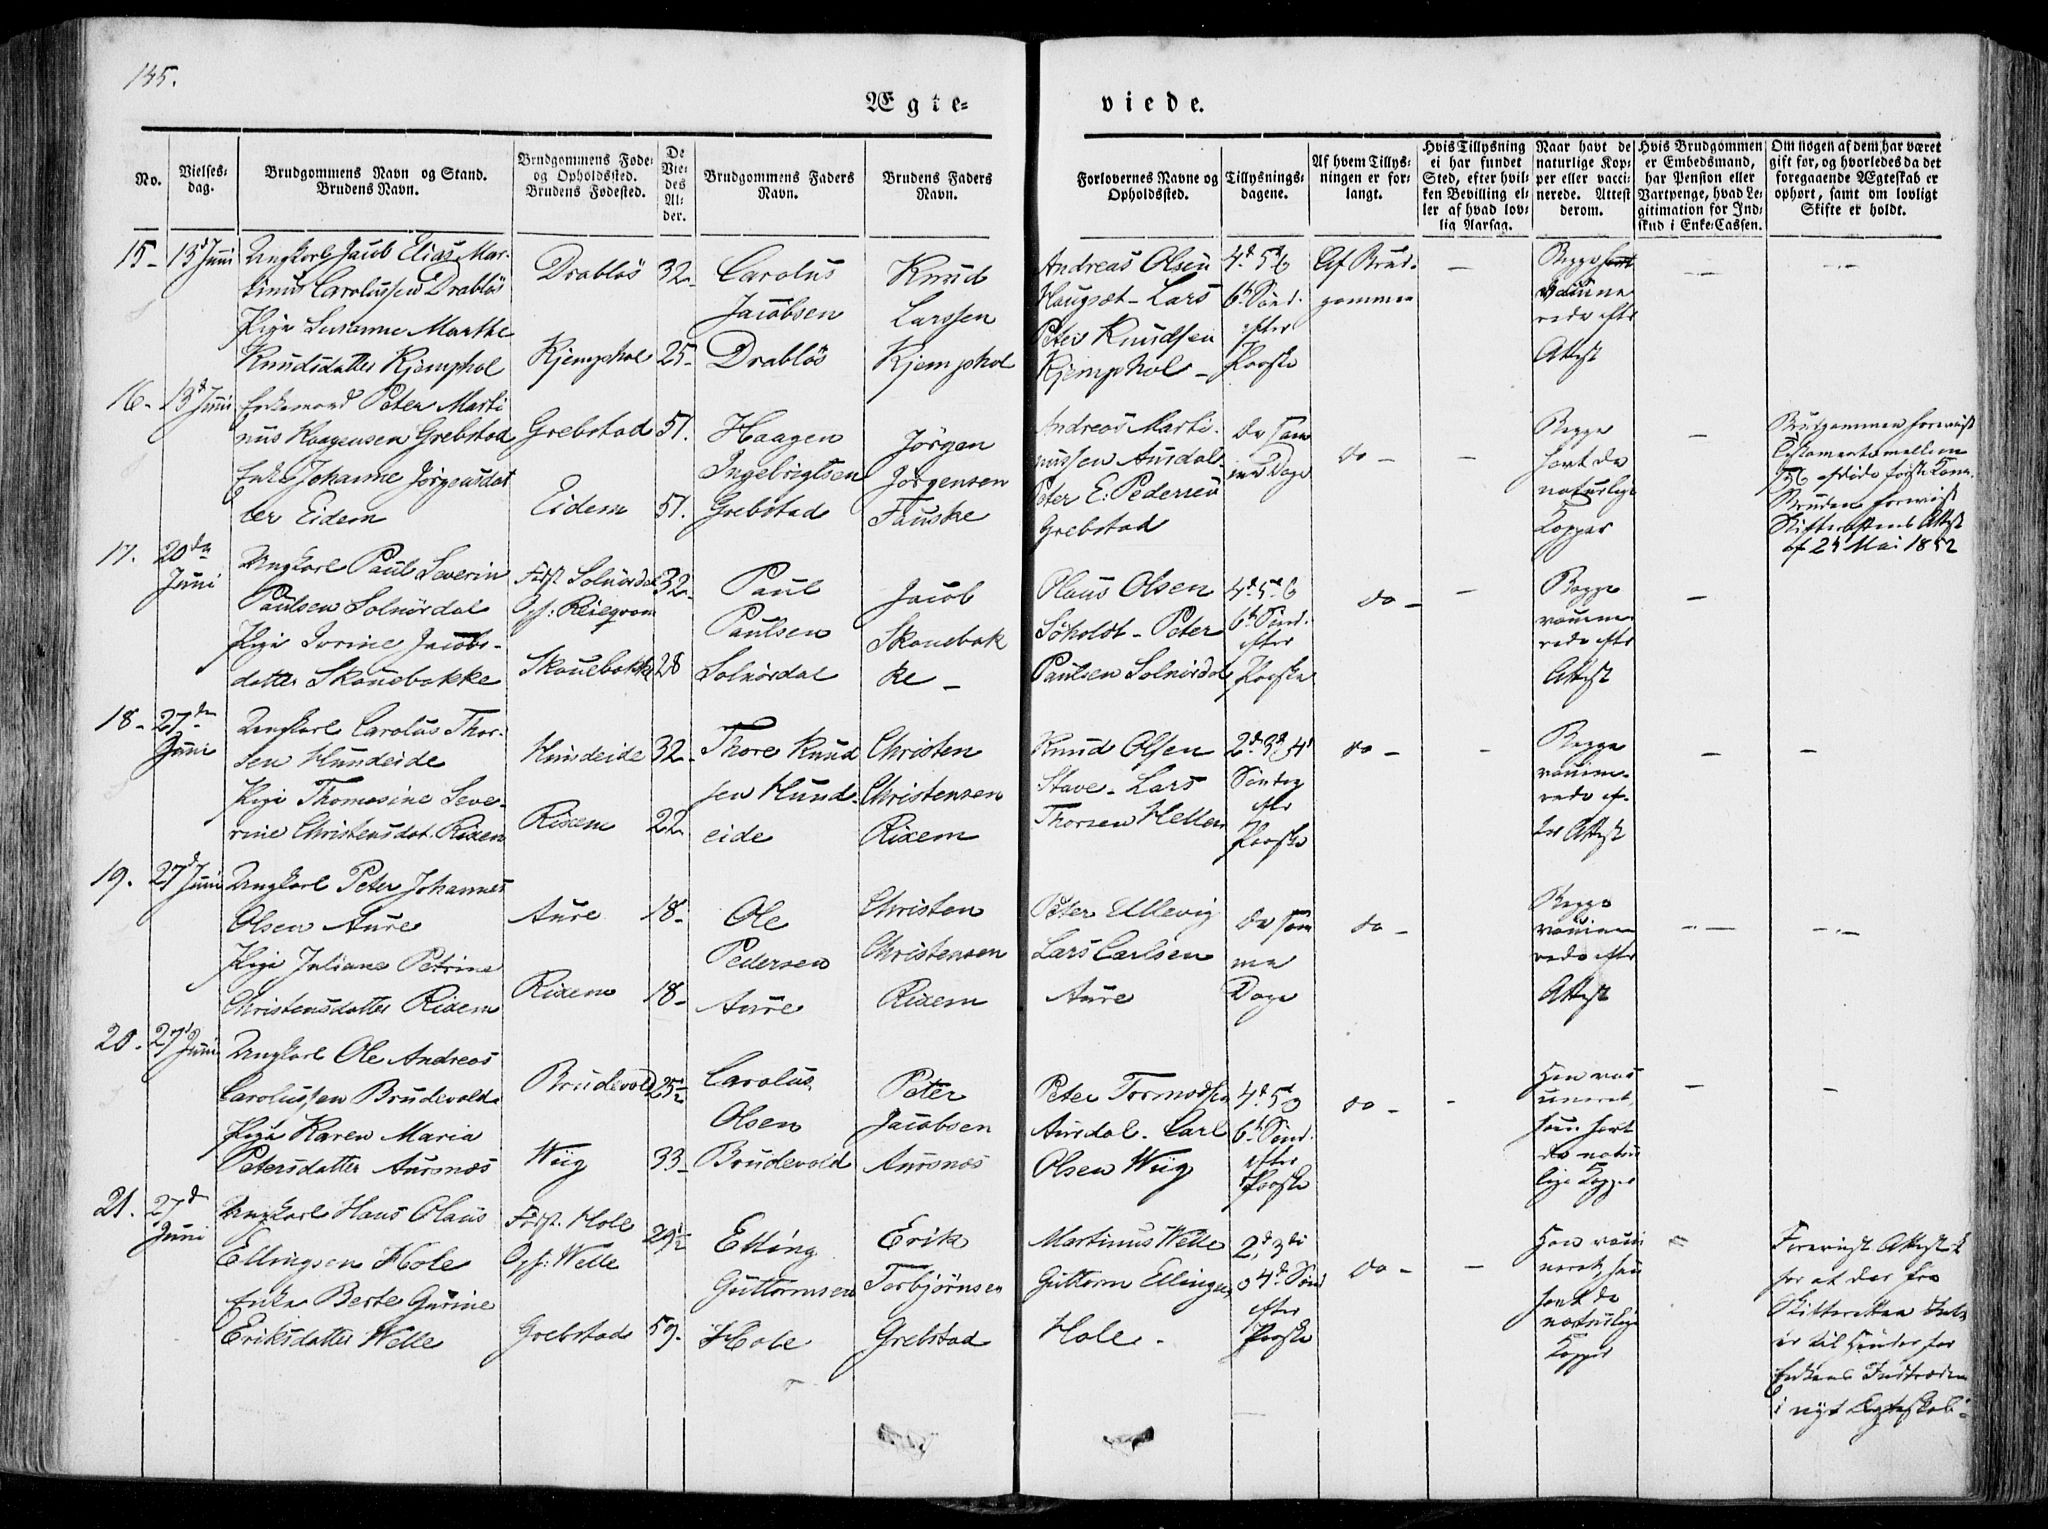 145.
Ægte-
viede.
No.
Vielses-
dag.
Brudgommens Navn og Stand.
Brudens Navn.
Brudgommens Føde-
og Opholdssted.
Brudens Fødested.
De
Vie-
des
Al-
der.
Brudgommens Faders
Navn.
Brudens Faders
Navn.
Forlovernes Navne og
Opholdssted.
Tillysnings-
dagene.
Af hvem Tillys-
ningen er for-
langt.
Hvis Tillysning
ei har fundet
Sted, efter hvil-
ken Bevilling el-
ler af hvad lov-
lig Aarsag.
Naar havt de
naturlige Kop-
per eller vacci-
nerede. Attest
derom.
Hvis Brudgommen
er Embedsmand,
har Pension eller
Vartpenge, hvad Le-
gitimation for Ind-
skud i Enke-Cassen.
Om nogen af dem har været
gift før, og hvorledes da det
foregaaende Ægteskab er
ophørt, samt om lovligt
Skifte er holdt.
15- 13d Juni
Ungkarl Jacob Elias Mar-
tinus Carolussen Drabløs
Pige Susanne Marthe
Knudsdatter Kjemphol
Drabløs
Kjemphol
32-
25-
Carolus
Jacobsen
Drabløs
Knud
Larssen
Kjemphol
Andreas Olsen
Haugset - Lars
Peter Knudsen
Kjemphol -
4d 5te &
6te Sønd.
efter
Paaske
Af Brud-
gommen
Begge
vaccine
rede eftr
Attest
16- 13d Juni
Enkemand Peter Marti
nus Haagensen Grebstad
Enke Johanne Jørgensdat
ter Eidem
Grebstad
Eidem
51.
51.
Haagen
Ingebrigtsen
Grebstad
Jørgen
Jørgensen
Fauske
Andreas Marti-
nussen Aursdal-
Peter E. Pedersen
Grebstad
de sam
me Dage
do -
Begge
havt de
naturlige
Kopper
Brudgommen forevist
Testamente mellem
første Kone.
Bruden forevist
Skifterettens Attest
af 24 Mai 1852
17. 20de
Juni
Ungkarl Paul Severin
Paulsen Solnørdal
Pige Ivrine Jacobs-
datter Skouebakke
Fødst. Solnørdal
Skouebakke
32-
28
Paul
Paulsen
Solnørdal
Jacob
Skouebak
ke -
Olaus Olsen
Søholdt - Peter
Paulsen Solnørdal
4d 5te &
6te Sønd.
efter
Paaske
do -
Begge
vaccine-
rede eftr
Attest
18- 27de
Juni
Ungkarl Carolus Thor-
sen Hundeide
Pige Thomasine Seve-
rine Christensdat. Rixem
Hundeide
Rixem
32-
22-
Thore Knud
sen Hund-
eide
Christen
Christensen
Rixem
Knud Olsen
Stave - Lars
Thorsen Hellen
2d 3d & 4d
Søndag
eftr
Paaske
do -
Begge
vaccine-
rede ef-
ter Attest
19. 27d Juni
Ungkarl Peter Johannes
Olsen Aure
Pige Juliane Petrine
Christensdatter Rixem
Aure
Rixem
18-
18-
Ole
Pedersen
Aure
Christen
Christensen
Rixem
Peter Ellevig
Lars Carlsen
Aure
de sam
me
Dage
do -
Begge
vaccine
rede eftr
Attest
20. 27d Juni
Ungkarl Ole Andreas
Carolussen Brudevold-
Pige Karen Maria
Petersdatter Aursnæs
Brudevold
Wiig
25½
33-
Carolus
Olsen
Brudevold
Peter
Jacobsen
Aursnæs
Peter Tormodsen
Aursdal. Carl
Olsen Wiig
4d 5te &
6te Sønd.
efter
Paaske
do -
hun havt
de natur
lige Kopper
21. 27d
Juni
Ungkarl Hans Olaus
Ellingsen Hole
Enke Berte Gurine
Eriksdatter Welle
Fødst. Hole
Oph: Welle
Grebstad
29½
59.
Elling
Guttormsen
Hole
Erik
Torbjørnsen
Grebstad
Martinus Welle
Guttorm Ellingsen
Hole.
2d, 3die
& 4de Sønd
efter
Paaske
do -
Han vacci
neret, hun
havt de
naturlige
Kopper
Forevist Attest
for at der fra
Skifteretten Intet
er til Hinder for
Enkens Indtræden
i nyt Ægteskab.